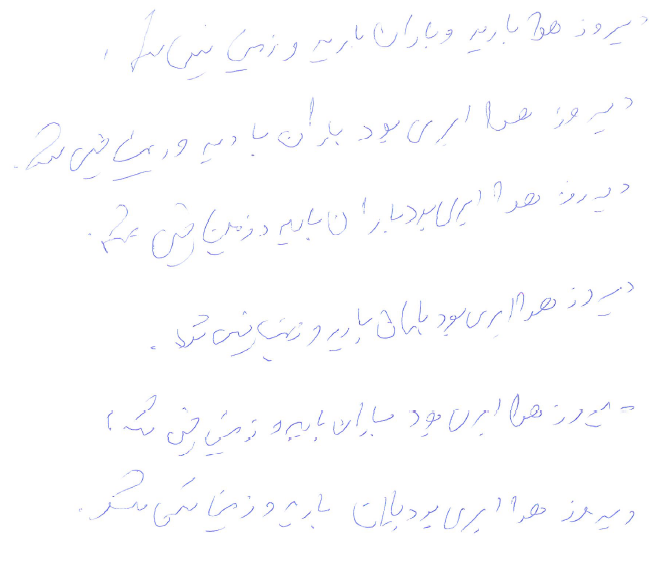 دیروز هوا بارید و باران بارید و زمین خیس شد.
دیروز هوا ابری بود باران بارید و زمین خیس شد.
دیروز هوا ابری بود باران بارید و زمین خیس شد.
دیروز هوا ابری بود باران بارید و زمین خیس شد.
دیروز هوا ابری بود باران بارید و زمین خیس شد.
دیروز هوا ابری بود باران بارید و زمین خیس شد.